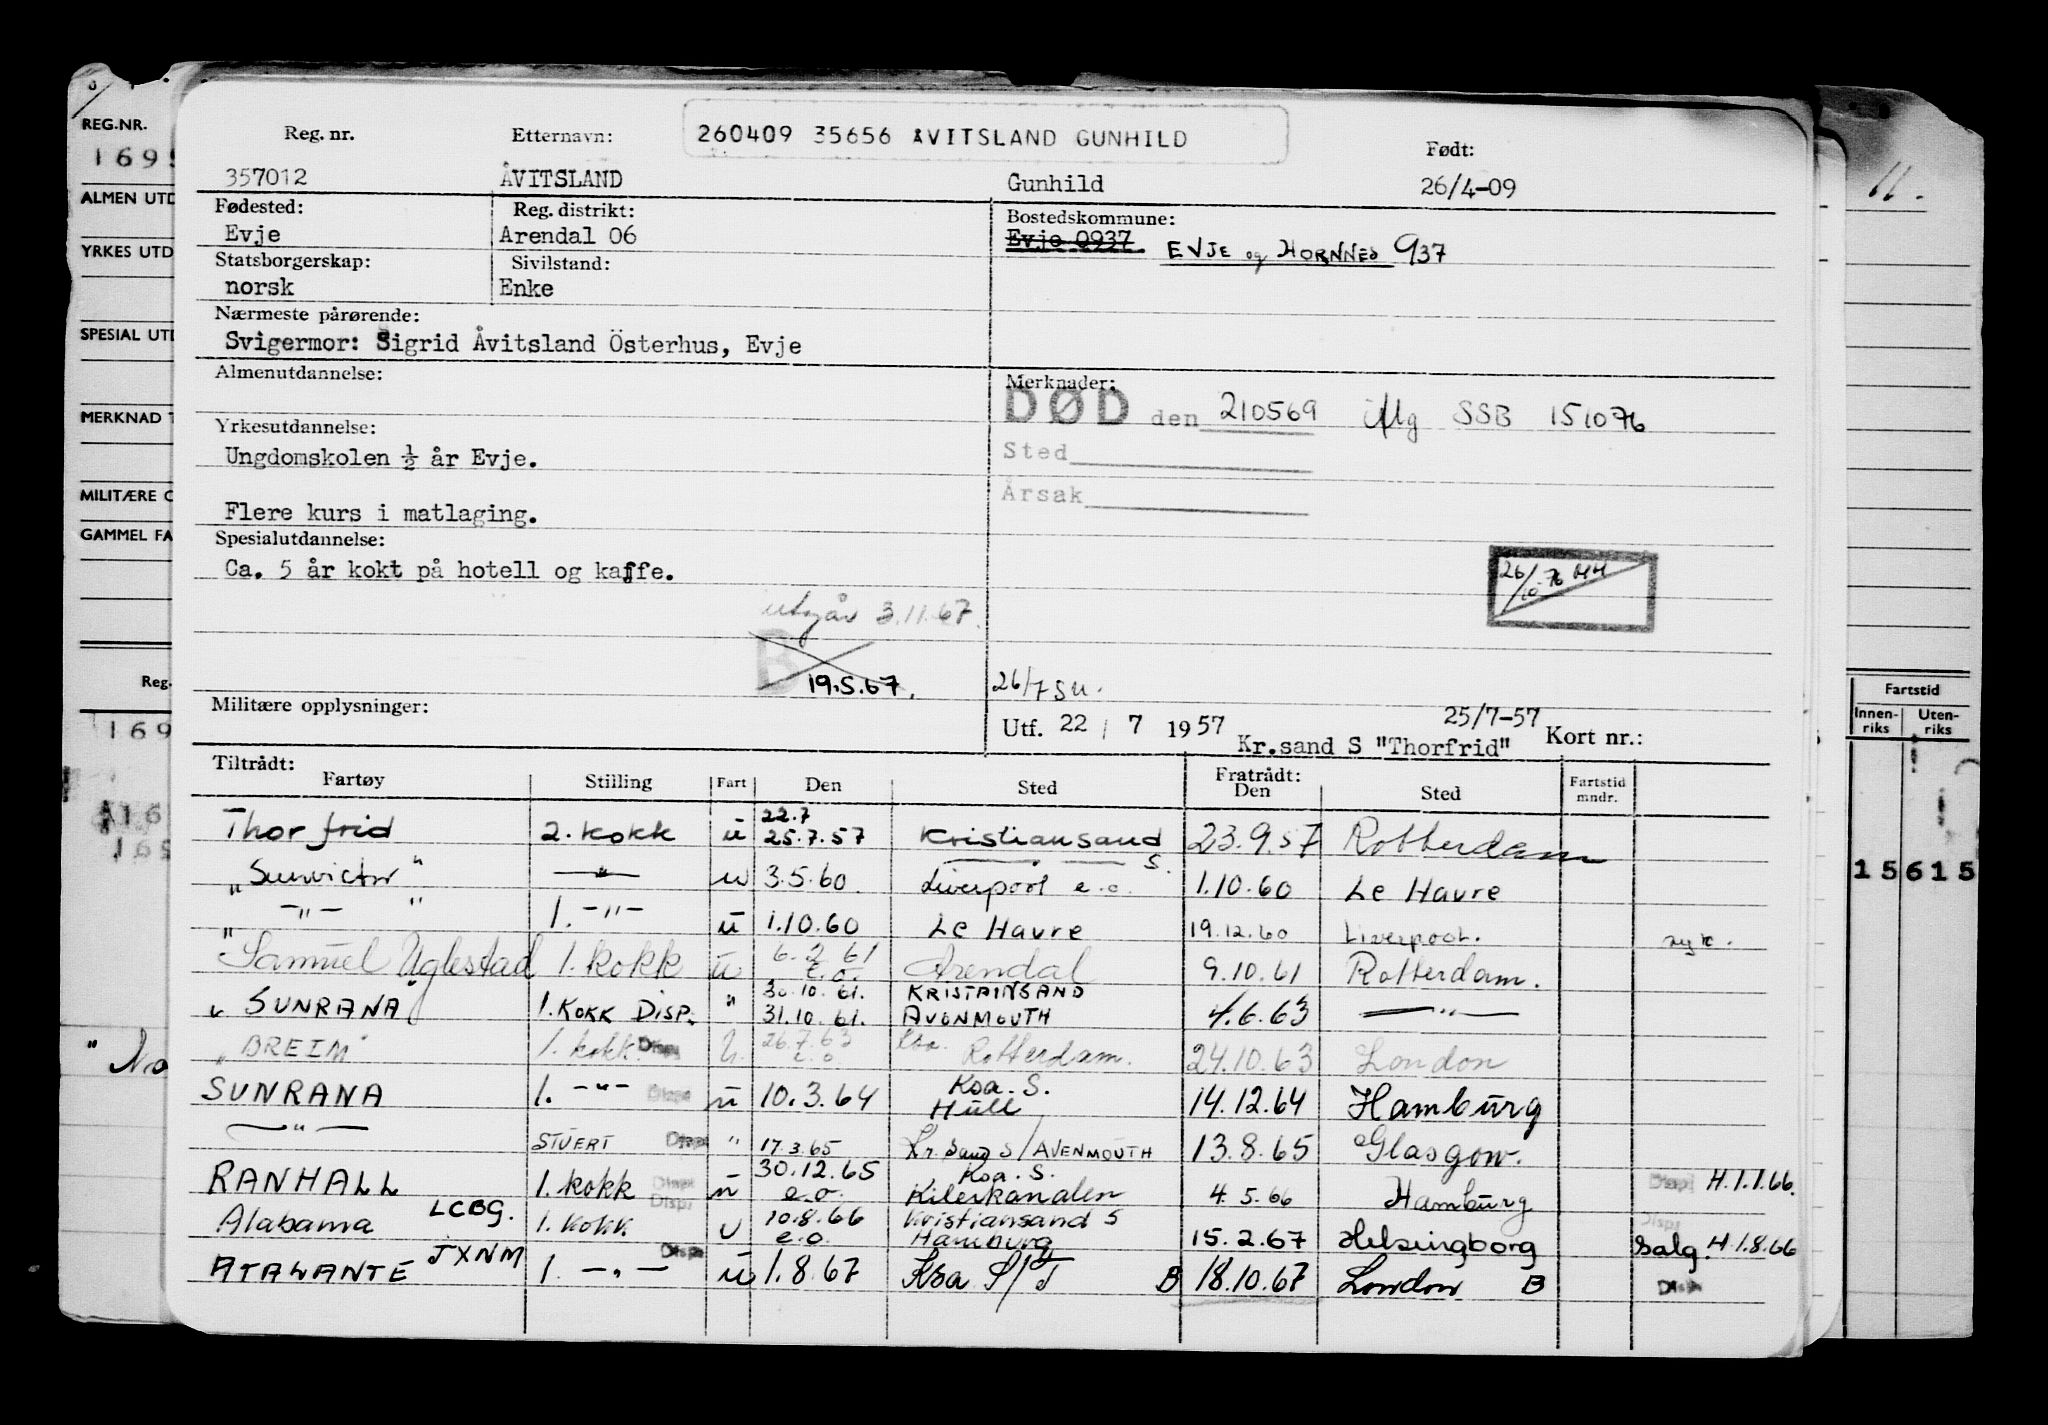 260409 35656 ÅVITSLAND GUNHILD
Reg. nr. Etternavn: Født:
357012 ÅVITSLAND Gunhild 26/4-09
Fødested: Reg. distrikt: Bostedskommune:
Evje Arendal 06 Evje 0937. EVJE og HORNNES 937
Statsborgerskap: Sivilstand:
norsk Enke
Nærmeste pårørende:
Svigermor: Sigrid Åvitsland Österhus, Evje
Almenutdannelse: Merknader:
DØD den 210569 iflg SSB 151076
Yrkesutdannelse:
Ungdomskolen ½ år Evje. Sted
Årsak
Flere kurs i matlaging.
Spesialutdannelse:
Ca. 5 år kokt på hotell og kaffe.
26/10-76 HH
utgår 3.11.67.
B 19.5.67. 26/7 SU.
Militære opplysninger: Utf. 22 / 7 1957 25/7-57 Kr.sand S "Thorfrid" Kort nr.:
Tiltrådt: Fratrådt:
Fartøy Stilling Fart Den Sted Den Sted Fartstid mndr.
Thorfrid 2. kokk u 22.7 25.7.57 Kristiansand S. 23.9.57 Rotterdam
"Sunvictor" —"— u 3.5.60. Liverpool e.o. 1.10.60 Le Havre
" —"— " 1. —"— u 1.10.60 Le Havre 19.12.60 Liverpool. syk.
"Samuel Uglestad" 1. kokk u 6.2 61 e.o. Arendal 9.10.61 Rotterdam.
" SUNRANA 1. KOKK DISP. " 30.10.61. KRISTAINSAND 31.10.61. AVONMOUTH 4.6.63 —"—
"BREIM" 1. kokk Disp u. 26.7.63 e.o. Ksa. Rotterdam. 24.10.63 London
SUNRANA 1. —"— Disp u 10.3.64 Ksa. S. Hull 14.12.64 Hamburg
—"— STUERT Disp " 17.3.65 Kr. sand S / AVENMOUTH 13.8.65 Glasgow.
RANHALL 1. kokk Disp u 30.12.65 e.o. Ksa. S. Kilerkanalen 4.5.66 Hamburg Disp H.1.1.66.
Alabama LCBG. 1. kokk. Disp u 10.8.66 e.o. Kristiansand S Hamburg 15.2.67 Helsingborg Disp Salg. H.1.8.66
ATALANTE JXNM 1. —"— Disp u 1.8.67 Ksa S/T B 18.10.67 London B Disp
REG.NR.
1695
ALMEN UTD
YRKES UTD
SPESIAL UTD
MERKNAD T
MILITÆRE O
GAMMEL FA
Reg.
169
A16
169
" No
11.
Fartstid
Innen-riks Uten-riks
15615